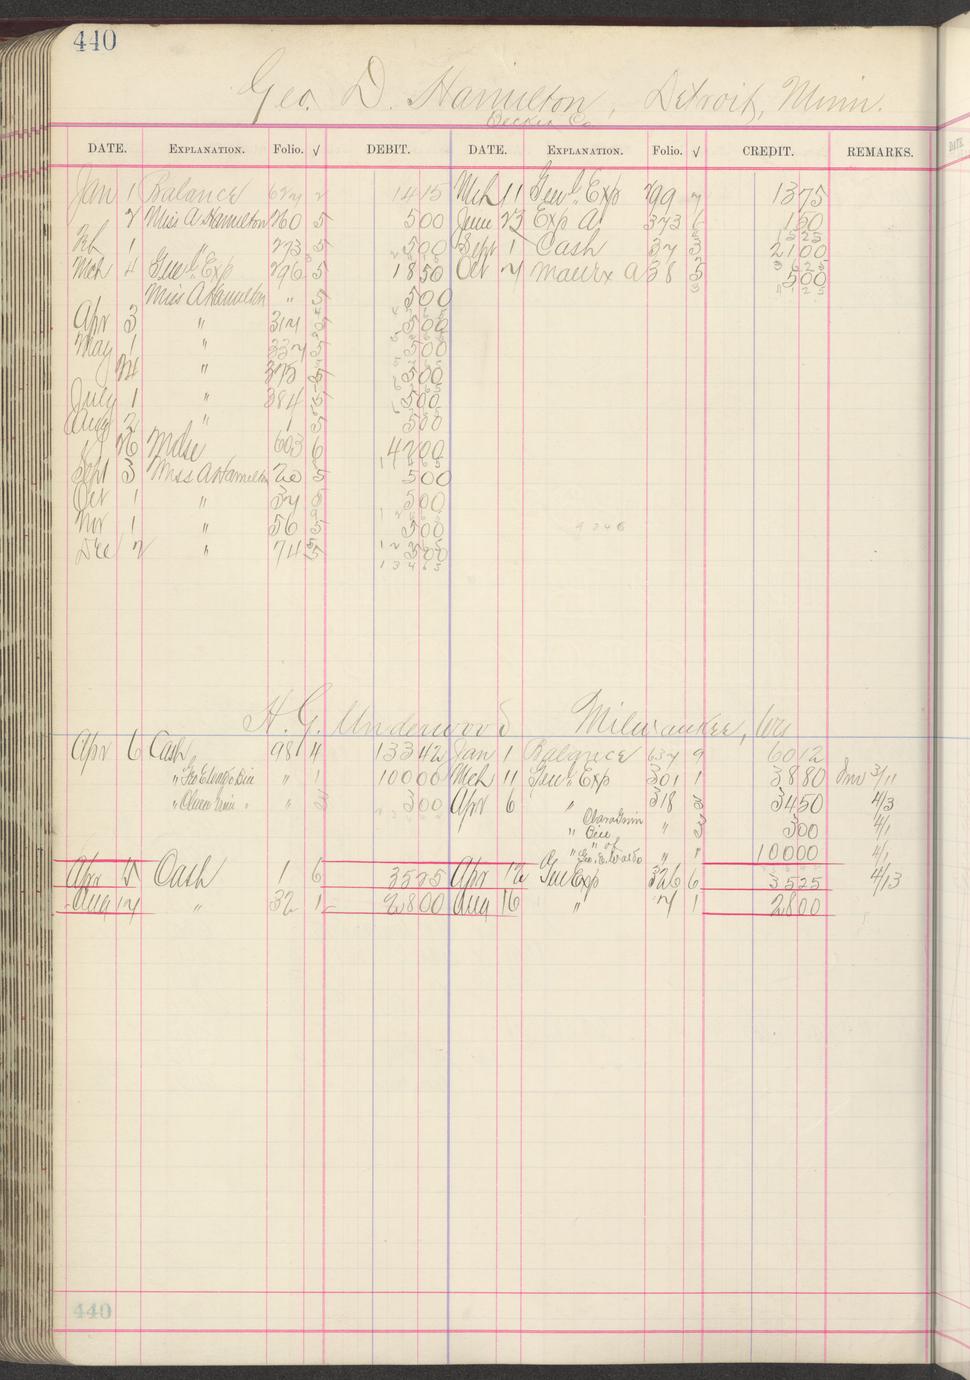 440
Geo. D. Hamilton, Detroit, Minn.
Becker Co
DATE. EXPLANATION. Folio. √ DEBIT. DATE. EXPLANATION. Folio. √ CREDIT. REMARKS.
Jan 1 Balance 1415 Mch 11 Genl Exp 299 7 1375
2 Miss A Hamilton 260 5 500 June 23 Exp A/ 373 6 150
Feb 1 " 273 5 500 Sept 1 Cash 37 3 2100
Mch 4 Genl Exp 296 5 1850 Oct 38 5 500
Miss A Hamilton " 5 500
Apr 3 " 314 5 500
May 1 " 5 500
" 5 500
July 1 " 384 5 500
Aug 2 " 1 5 500
26 Mdse 603 6 4200
Sept 3 Miss A Hamilton 20 5 500
Oct 1 " 5 500
Nov 1 " 56 5 500
Dec 2 " 74 5 500
13465
H. G. Underwood Milwaukee, Wis
Apr 6 Cash 98 4 13342 Jan 1 Balance 9 6012
" " 1 10000 Mch 11 Genl Exp 301 1 3880 Inv 3/11
" " 3 300 Apr 6 " 318 3 3450 4/3
" " 3 300 4/1
" " 1 10000 4/1
Apr 15 Cash 1 6 3525 Apr 12 Gen Exp 326 6 3525 4/13
Aug 17 " 32 1 2800 Aug 16 " 7 1 2800
440